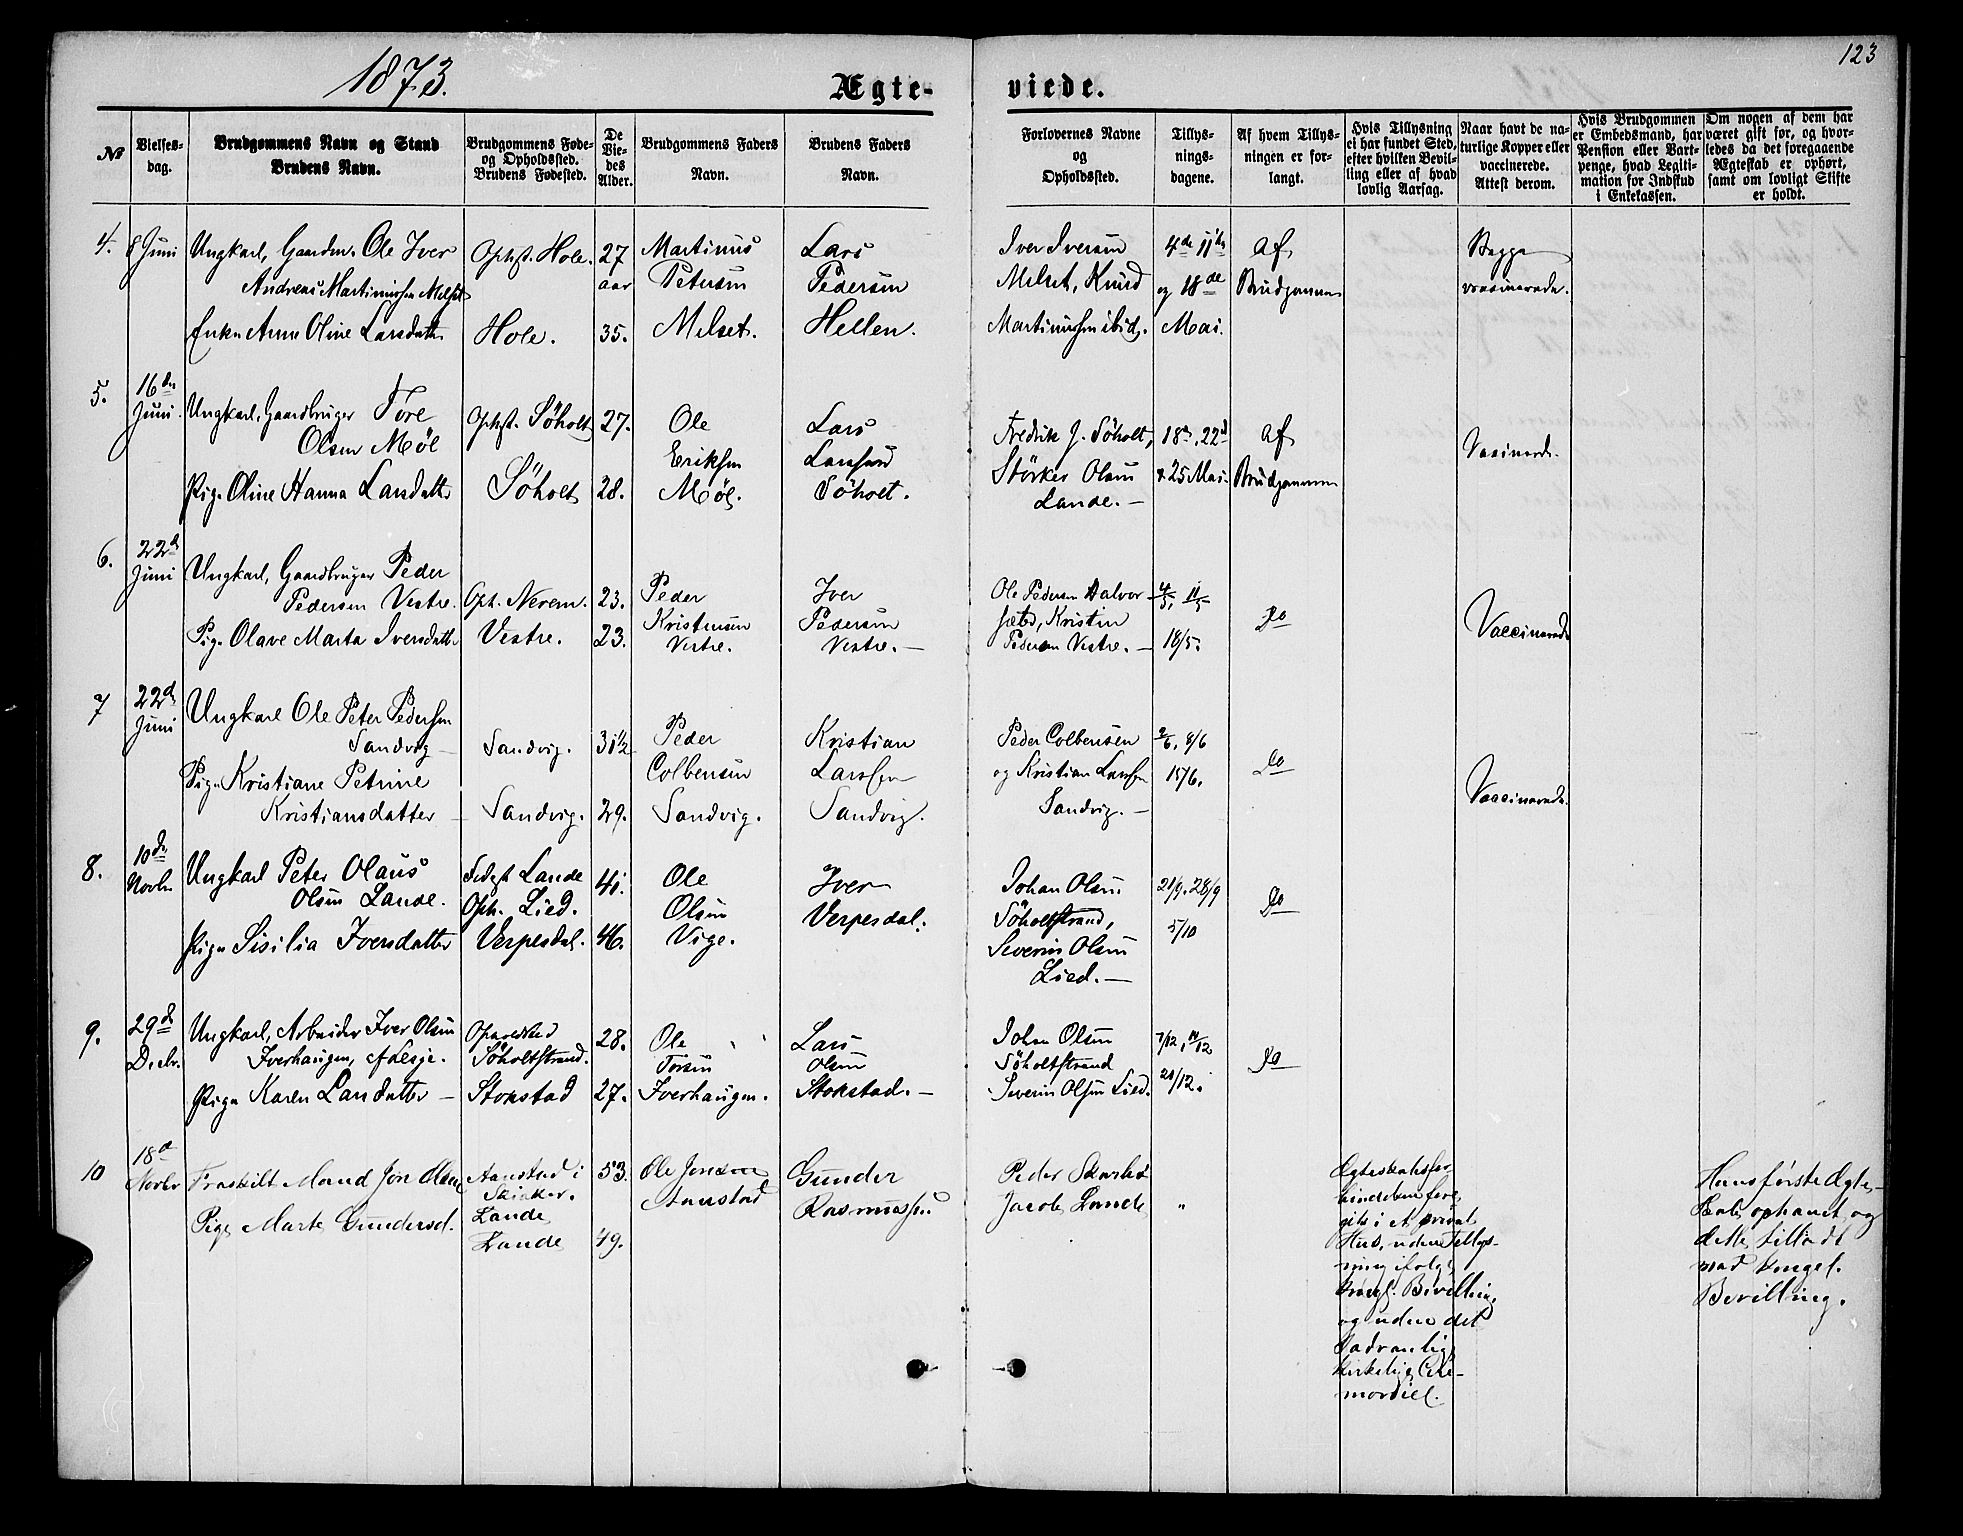 1873.
Ægte-
viede.
123
№
Vielses-
dag.
Brudgommens Navn og Stand
Brudens Navn.
Brudgommens Føde-
og Opholdssted.
Brudens Fødested.
De
Vie-
des
Alder.
Brudgommens Faders
Navn.
Brudens Faders
Navn.
Forlovernes Navne
og
Opholdssted.
Tillys-
nings-
dagene.
Af hvem Tillys-
ningen er for-
langt.
Hvis Tillysning
ei har fundet Sted,
efter hvilken Bevil-
ling eller af hvad
lovlig Aarsag.
Naar havt de na-
turlige Kopper eller
vaccinerede.
Attest derom.
Hvis Brudgommen
er Embedsmand, har
Pension eller Vart-
penge, hvad Legiti-
mation for Indskud
i Enkekassen.
Om nogen af dem har
været gift før, og hvor-
ledes da det foregaaende
Ægteskab er ophørt,
samt om lovligt Skifte
er holdt.
4.
8 Juni
Ungkarl, Gaardm. Ole Iver
Andreas Martinussen Melset
Enke Anne Oline Larsdatter
Ophst. Hole.
Hole.
27
aar
35.
Martinus
Petersen
Melset.
Lars
Pedersen
Hellen.
Iver Iversen
Melset, Knud
Martinussen ibid.
4de 11te
og 18de
Mai.
Af
Brudgommen
Begge
vaccinerede.
5.
16de
Juni.
Ungkarl, Gaardbruger Tore
Olsen Møl
Pige Oline Hanna Larsdatter
Ophst. Söholt
Söholt
27.
28.
Ole
Eriksen
Møl.
Lars
Larssen
Söholt.
Fredrik J. Söholt,
Störker Olsen
Lande.
18de, 22d
& 25 Mai.
Af
Brudgommen
Vaccinerede.
6.
22d
Juni
Ungkarl, Gaardbruger Peder
Pedersen Vestre.
Pige Olave Marta Iversdatter
Oph. Nerem.
Vestre.
23.
23.
Peder
Kristensen
Vestre.
Iver
Pedersen
Vestre.
Ole Pedersen Halvor-
sæter, Kristen
Pedersen Vestre.
4/5, 11/5
18/5.
Do
Vaccinerede
7
22d
Juni
Ungkarl Ole Peter Pedersen
Sandvig
Pige Kristiane Petrine
Kristiansdatter
Sandvig.
Sandvig.
31½
29.
Peder
Colbensen
Sandvig.
Kristian
Larssen
Sandvig.
Peder Colbensen
og Kristian Larssen
Sandvig.
2/6, 8/6
15/6.
Do
Vaccinerede.
8.
10de
Novbr
Ungkarl Peter Olaus
Olsen Lande.
Pige Sisilia Iversdatter
Fødest Lande
Oph. Lied.
Verpesdal.
41.
46.
Ole
Olsen
Vige.
Iver
Verpesdal.
Johan Olsen
Söholtstrand,
Severin Olsen
Lied.
21/9. 28/9
5/10
Do
9.
29d
Decbr.
Ungkarl, Arbeider Iver Olsen
Iverhaugen, af Lesje.
Pige Karen Larsdatter
Opholdsted
Söholtstrand.
Stokstad
28.
27.
Ole
Torsen
Iverhaugen.
Lars
Olsen
Stokstad.
Johan Olsen
Söholtstrand
Severin Olsen Lied.
7/12, 14/12
21/12.
Do
10
18d
Novbr
Fraskilt Mand Jon Olsen
Pige Marte Gundersd.
Aanstad i
Skiaker.
Lande
Lande
53.
49.
Ole Jonsen
Aanstad
Gunder
Rasmussen
Peder
Jacob Lande
"
Ægteskabsfor-
bindelsen fore-
gik i et privat
Hus, uden Tillys-
ning ifølge
Kongl. Bevilling,
og uden det
sædvanlige
kirkelige Cere-
moniel.
Hans første Ægte-
skab ophævet og
dette tilladt
ved kongel.
Bevilling.